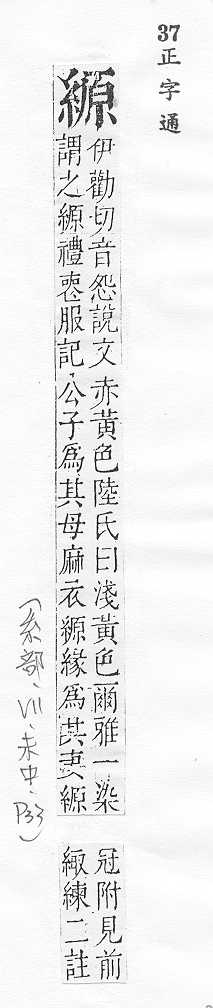 37
正字通
縓
伊勸切音怨說文赤黃色陸氏曰淺黃色爾雅一染
謂之縓禮喪服記公子爲其母麻衣縓緣爲其妻縓
冠附見前
緅練二註
(糸部、VII、未中、P33)